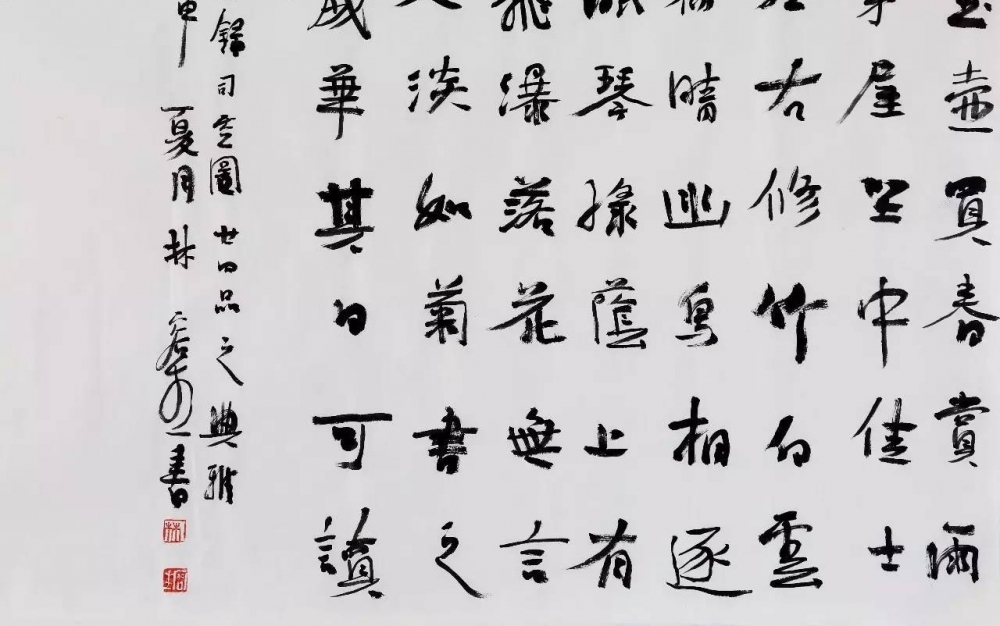 玉壺買春賞雨
茅屋坐中佳士
左右修竹白雲
初晴幽鳥相逐
眠琴綠蔭上有
飛瀑落花無言
人淡如菊書之
歲華其曰可讀
錄司空圖廿四品之典雅
申夏月林書
林